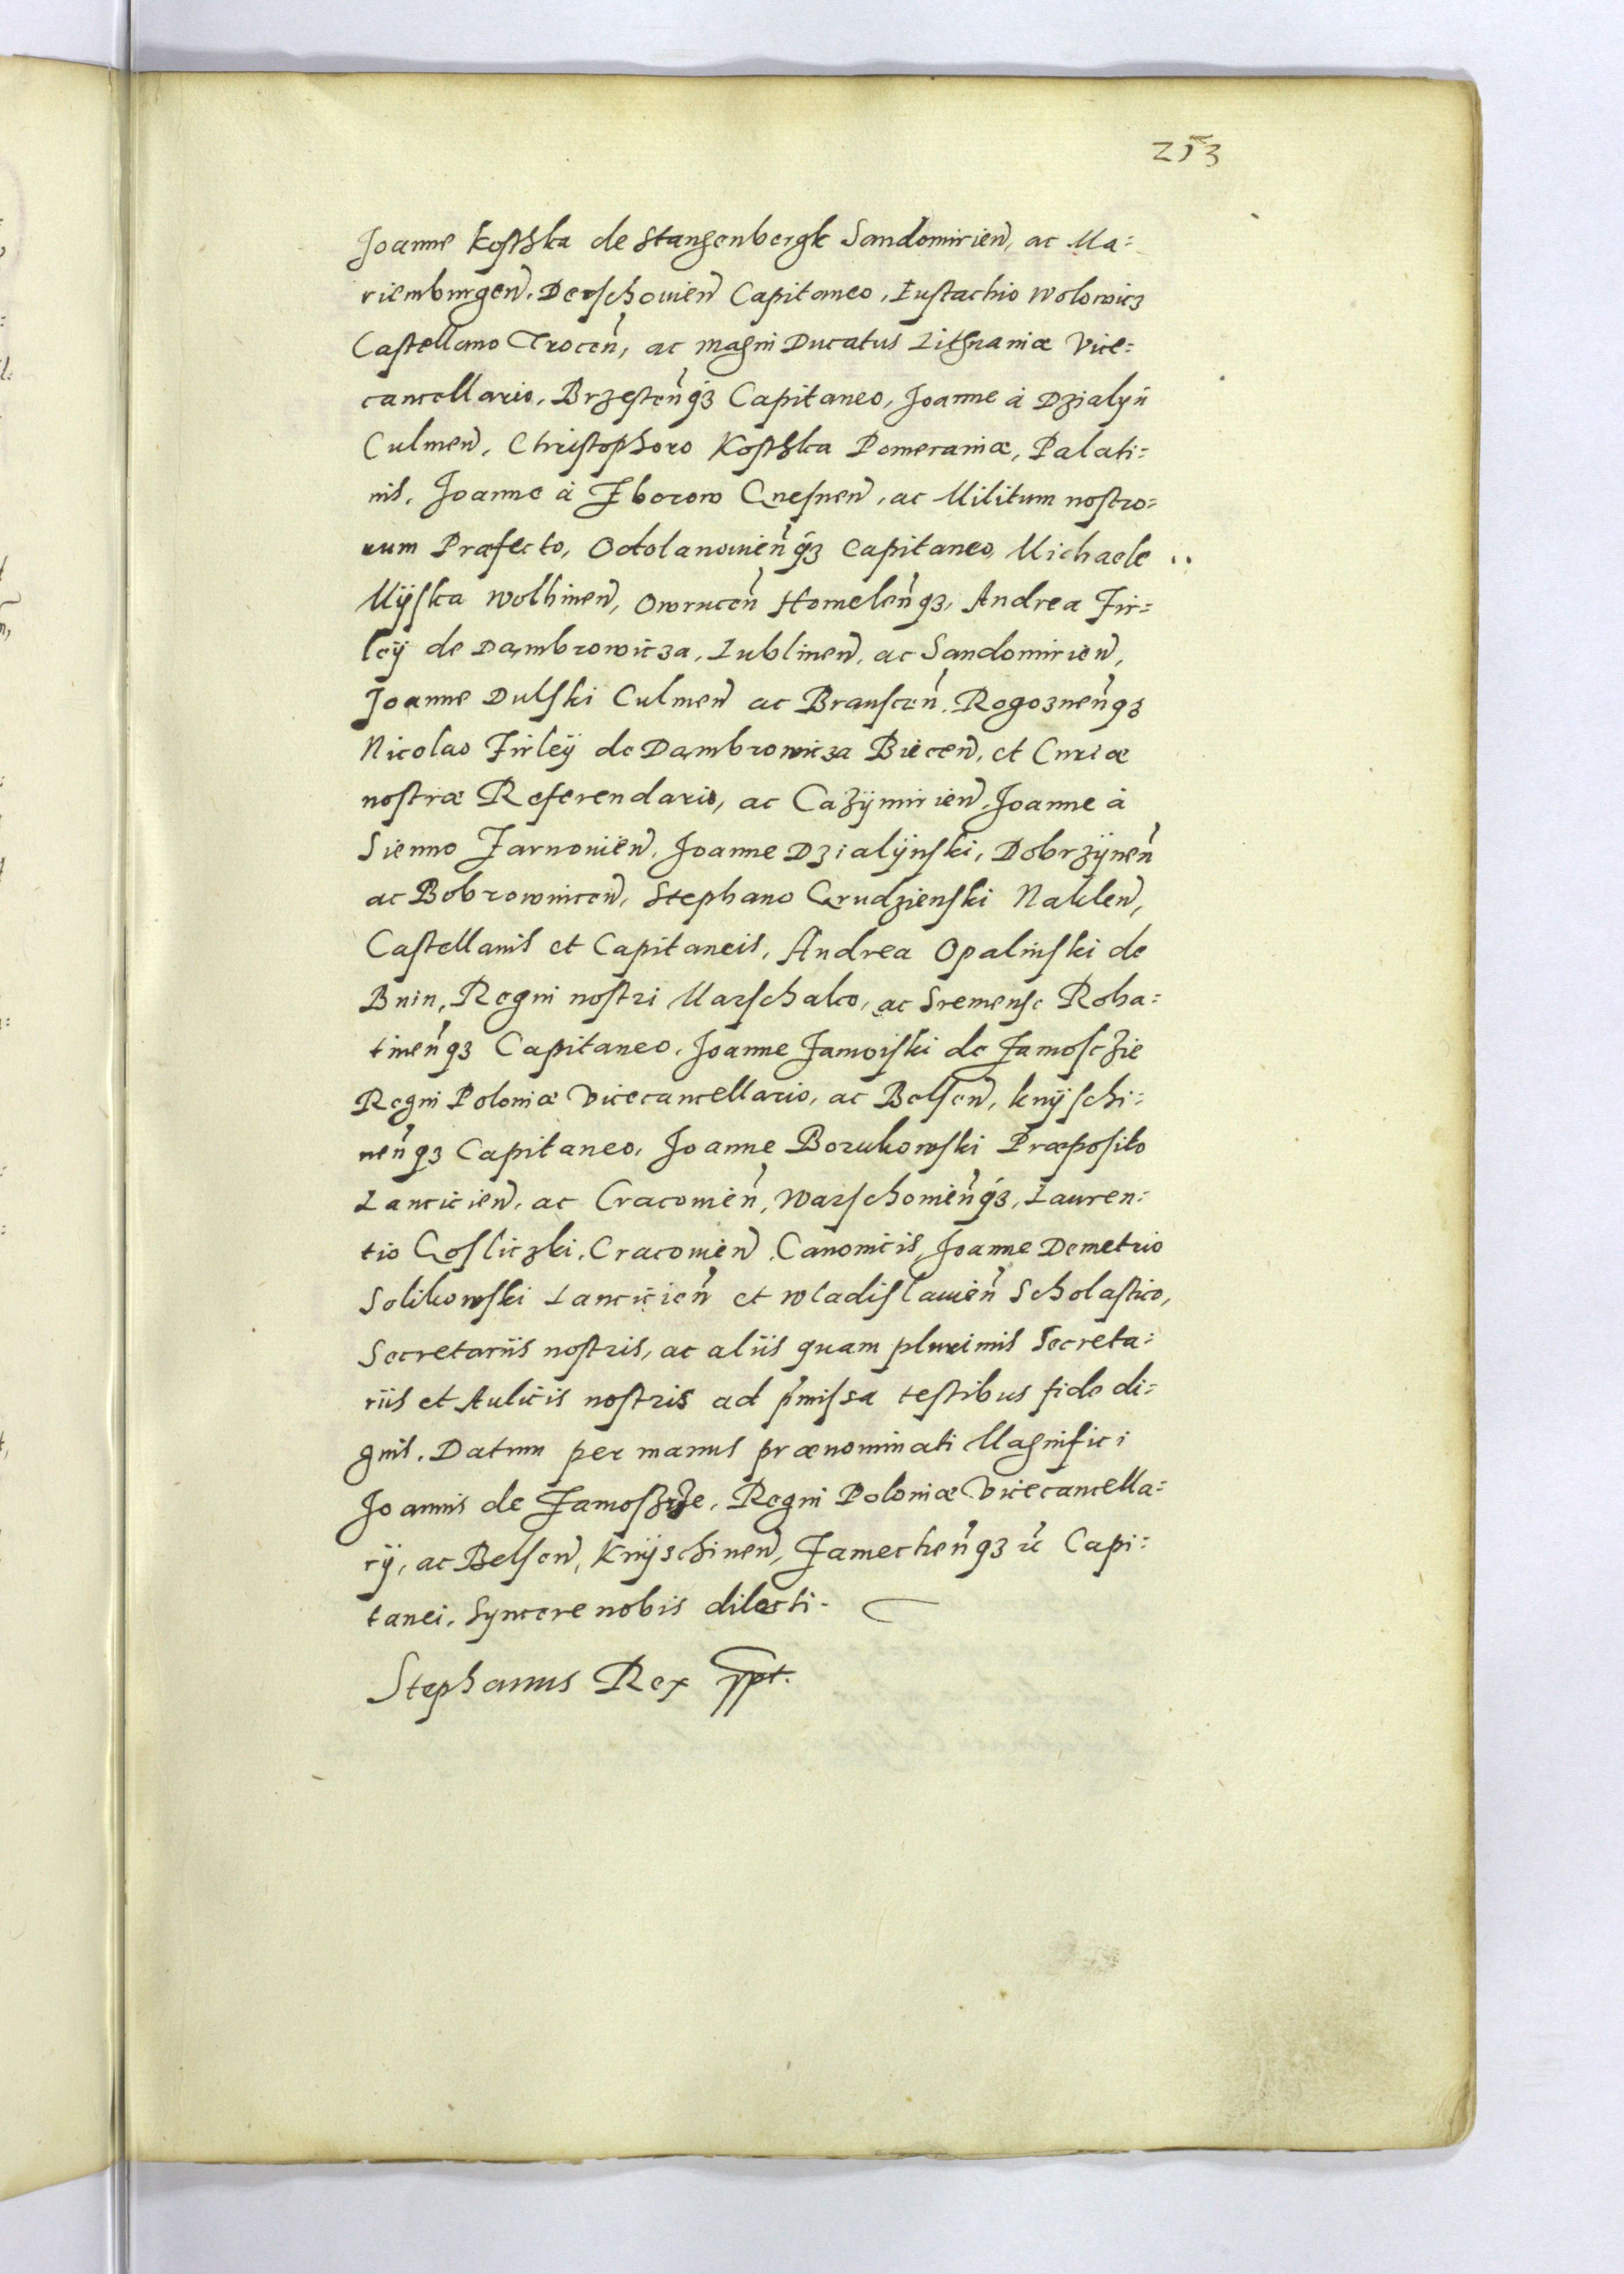 253
Joanne Kosthka de Stangenbergk Sandomirien, ac Ma=
riemburgen, Derschouien Capitaneo, Eustachio Wolowicz
Castellano Trocen̄, ac magni Ducatus Lithuaniæ Vice=
cancellario, Brzesten̄qз Capitaneo, Joanne à Dzialÿn
Culmen, Christophoro Kosthka Pomeraniæ, Palati=
nis, Joanne à Zborow Gnesnen, ac Militum nostro=
rum Præfecto, Odolanouien̄qз Capitaneo, Michaele
Mÿska Wolhinen, Owrucen̄ Homelen̄qз, Andrea Fir=
leÿ de Dambrowicza, Lublinen, ac Sandomirien,
Joanne Dulski Culmen ac Branscen̄, Rogoznen̄qз
Nicolao Firleÿ de Dambrowicza Biecen, et Curiæ
nostræ Referendario, ac Cazÿmirien, Joanne à
Sienno Zarnouien, Joanne Dzialÿnski, Dobrzÿnen̄
ac Bobrownicen, Stephano Grudzienski Naklen,
Castellanis et Capitaneis, Andrea Opalinski de
Bnin, Regni nostri Marschalco, ac Sremense Roha=
tinen̄qз Capitaneo, Joanne Zamoiski de Zamosczie
Regni Poloniæ Vicecancellario, ac Belsen, knÿschi=
nen̄qз Capitaneo, Joanne Borukowski Præposito
Lancicien, ac Cracouien̄, Warschouien̄qз, Lauren=
tio Gosliczki, Cracouien Canonicis, Joanne Demetrio
Solikowski Lancicien̄ et Wladislauien̄ Scholastico,
Secretariis nostris, ac aliis quam plurimis Secreta=
riis et Aulicis nostris ad p̄missa testibus fide di=
gnis. Datum per manus prænominati Magnifici
Joannis de Zamosczie, Regni Poloniæ Vicecancella=
rÿ, ac Belsen, Knÿschinen, Zamechen̄qз Capi=
tanei, Syncere nobis dilecti.
Stephanus Rex sspt.